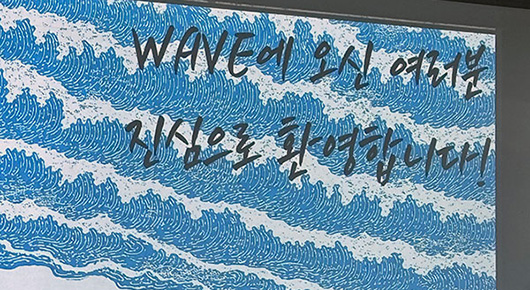 WAVE에 오신 여러분
진심으로 환영합니다!